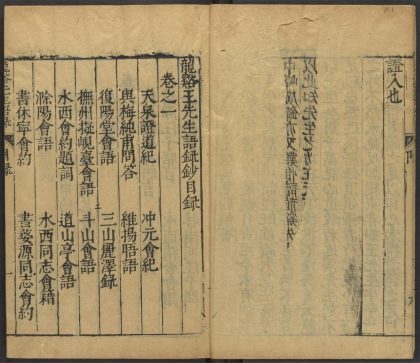 證入也
龍谿王先生語錄鈔目錄
卷之一
天泉證道紀　冲元會紀
與梅純甫問答　維揚晤語
復陽堂會語　三山麗澤錄
撫州擬峴臺會語　斗山會語
水西會約題詞　道山亭會語
滁陽會語　水西同志會籍
書休寧會約　書婺源同志會約
目錄
一